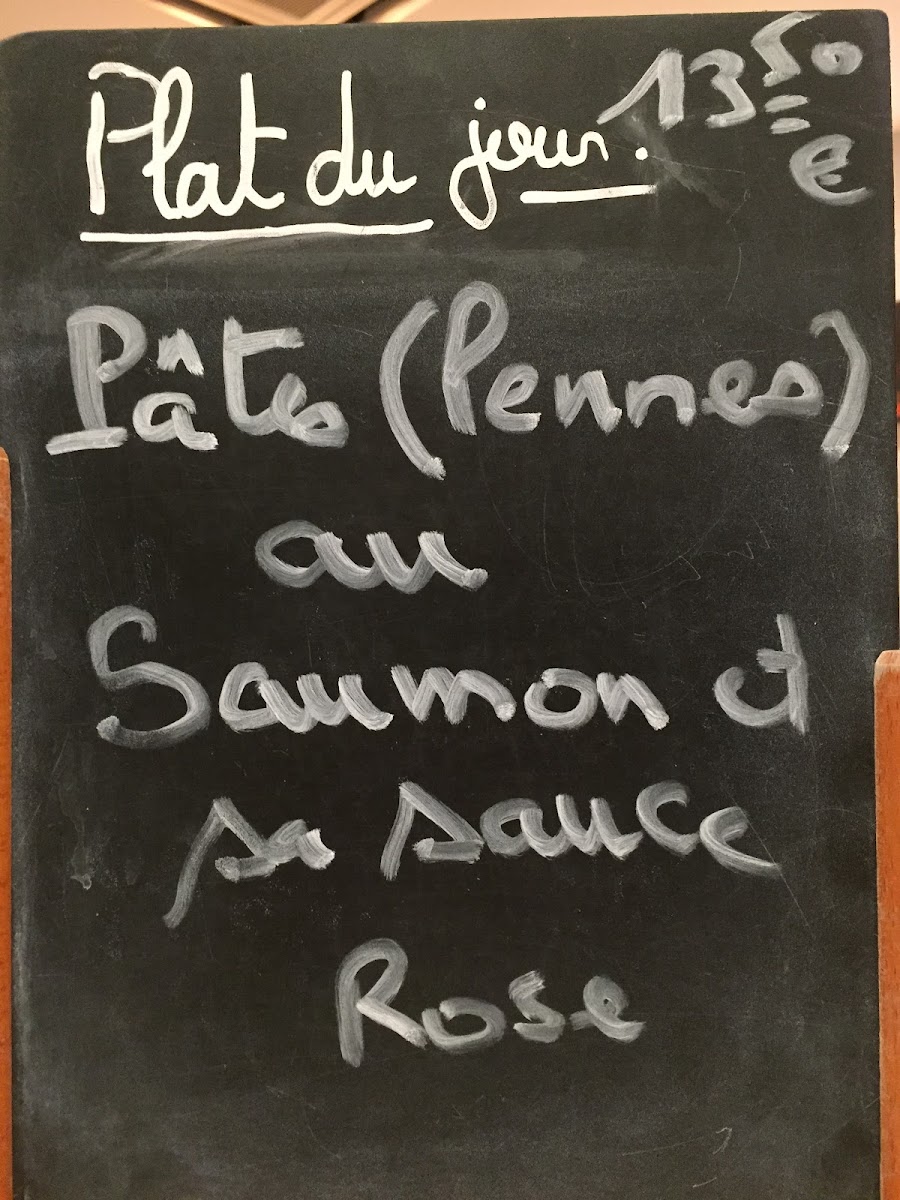 Plat du jour. 13 50 €
Pâtes (Pennes)
au
Saumon et
sa sauce
Rose